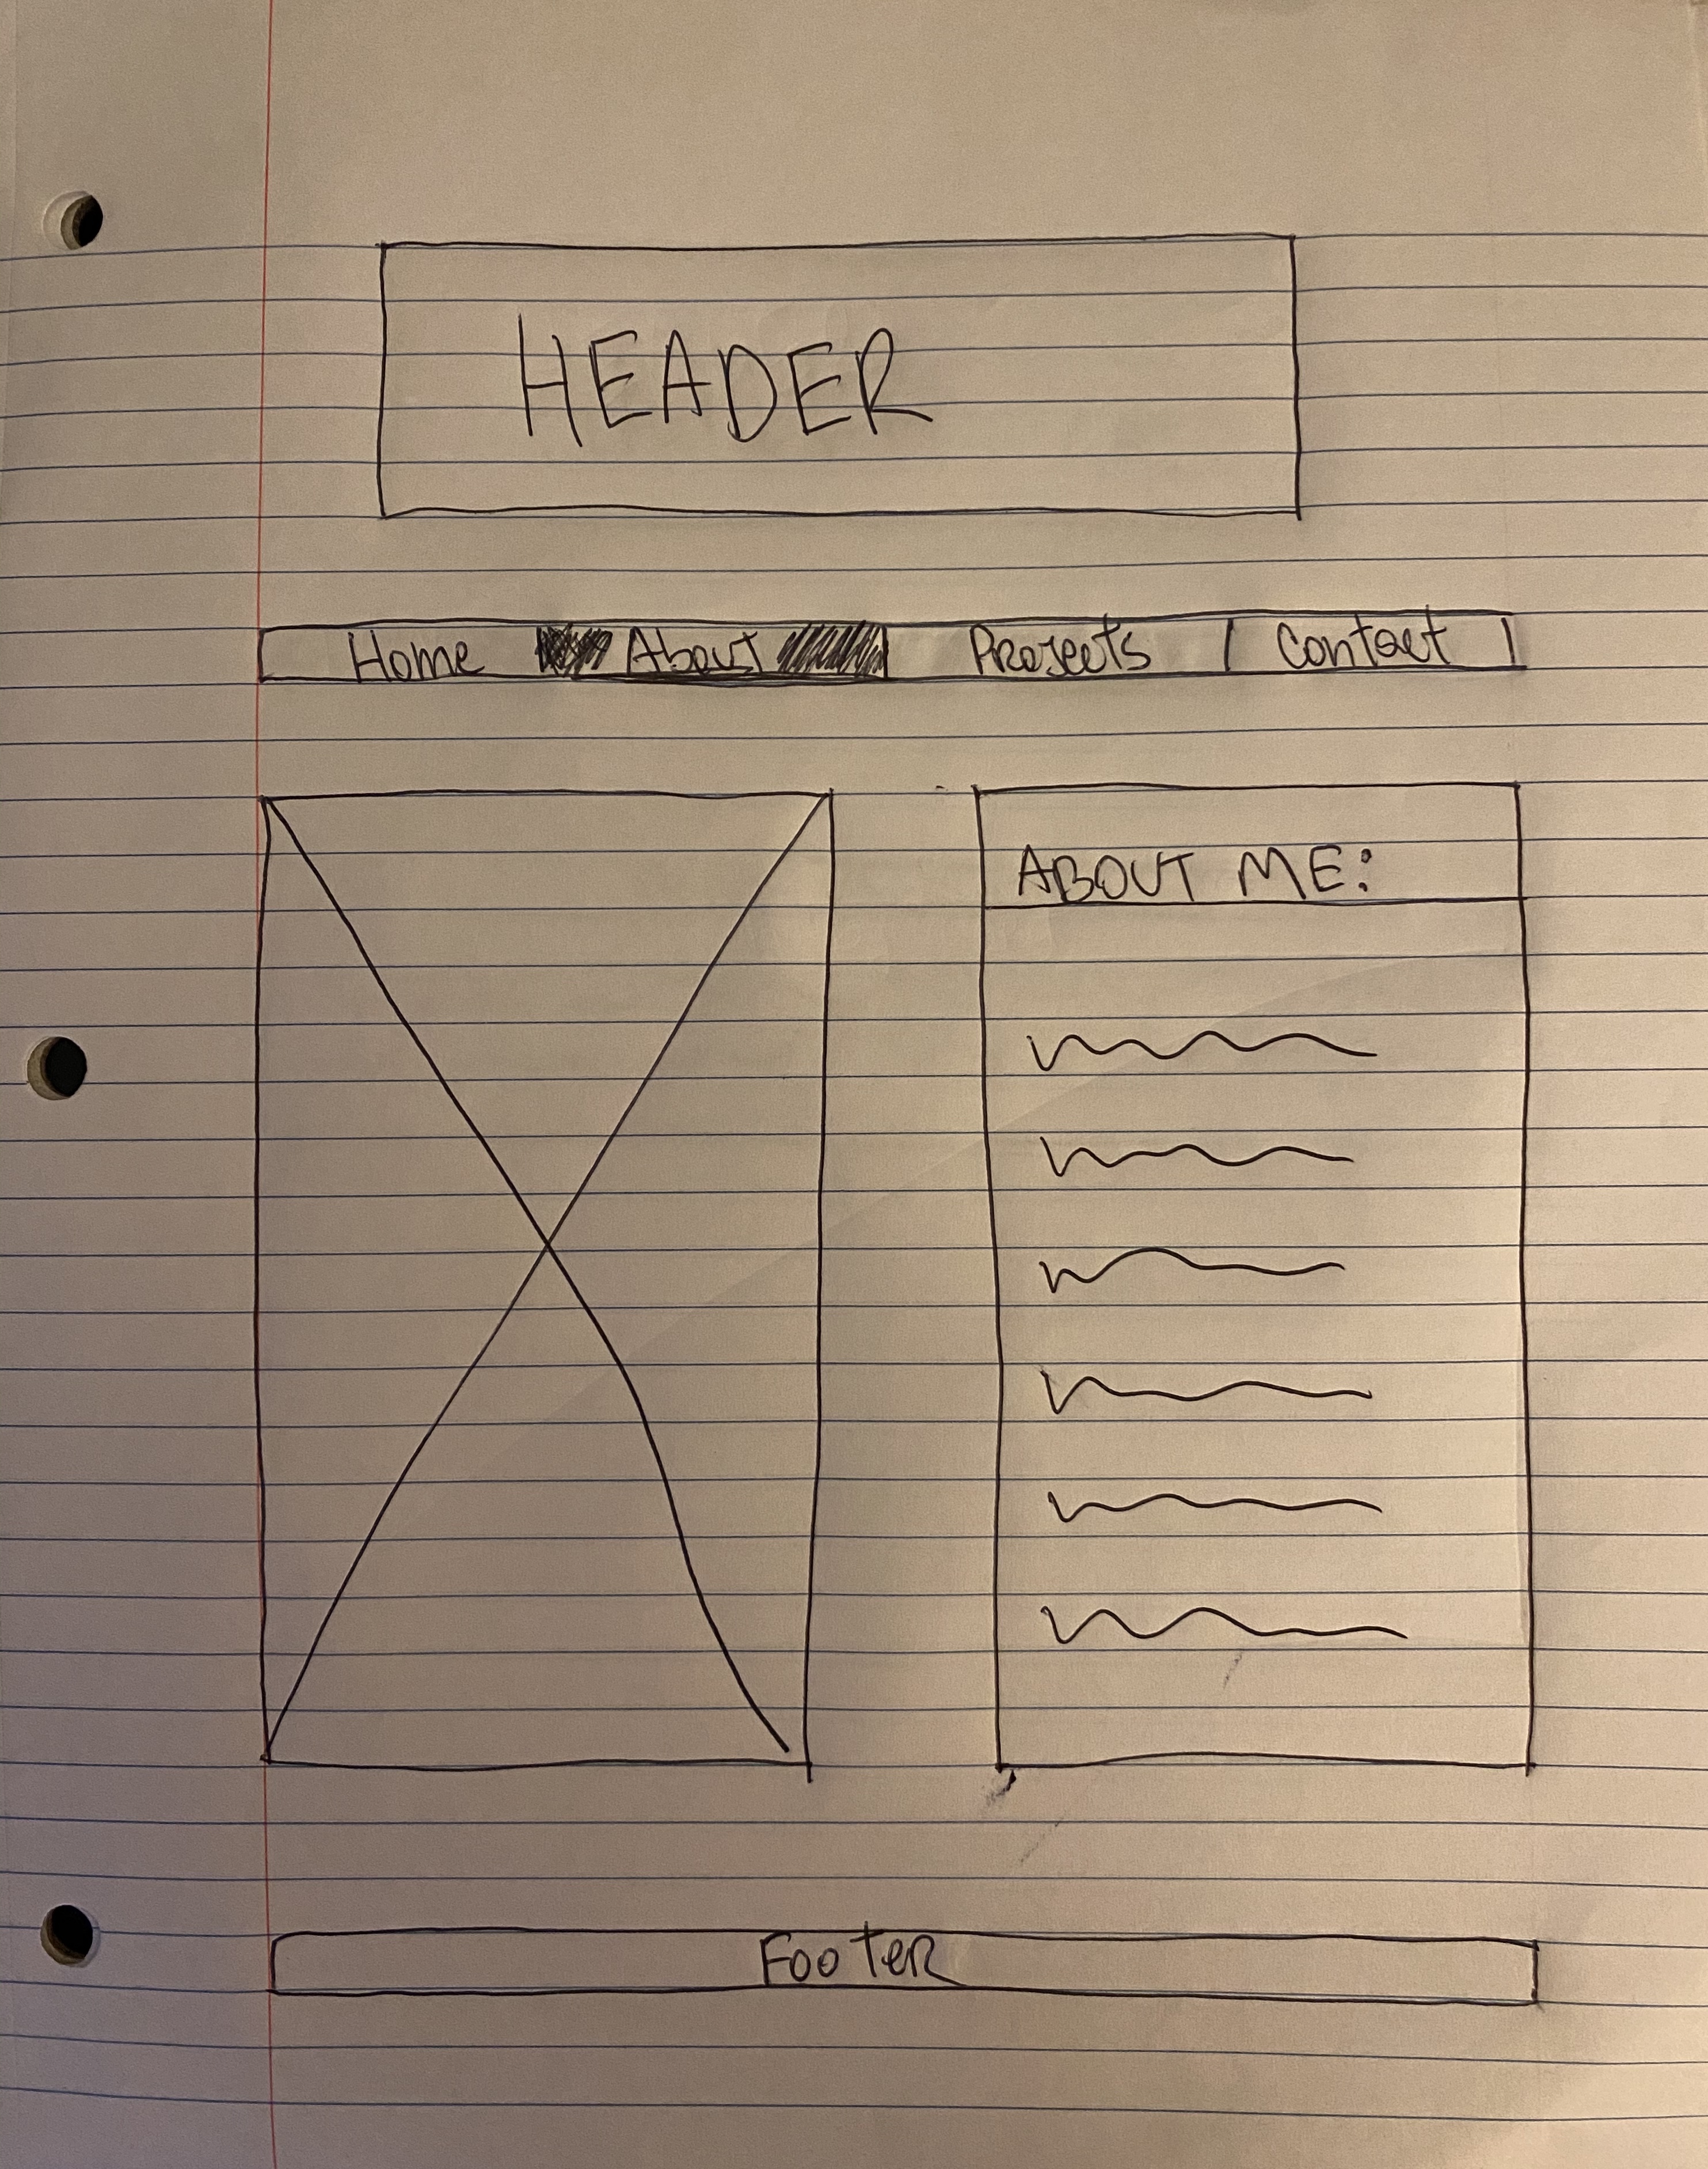 HEADER
Home About Projects Contact
ABOUT ME:
Footer